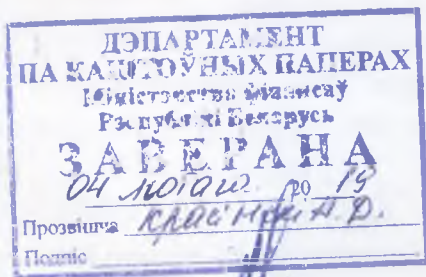 ДЭПАРТАМЕНТ
ПА КАШТОЎНЫХ ПАПЕРАХ
Міністэрства фінансаў
Рэспублікі Беларусь
ЗАВЕРАНА
04 лютаго 20 19
Прозвішча
Подпіс